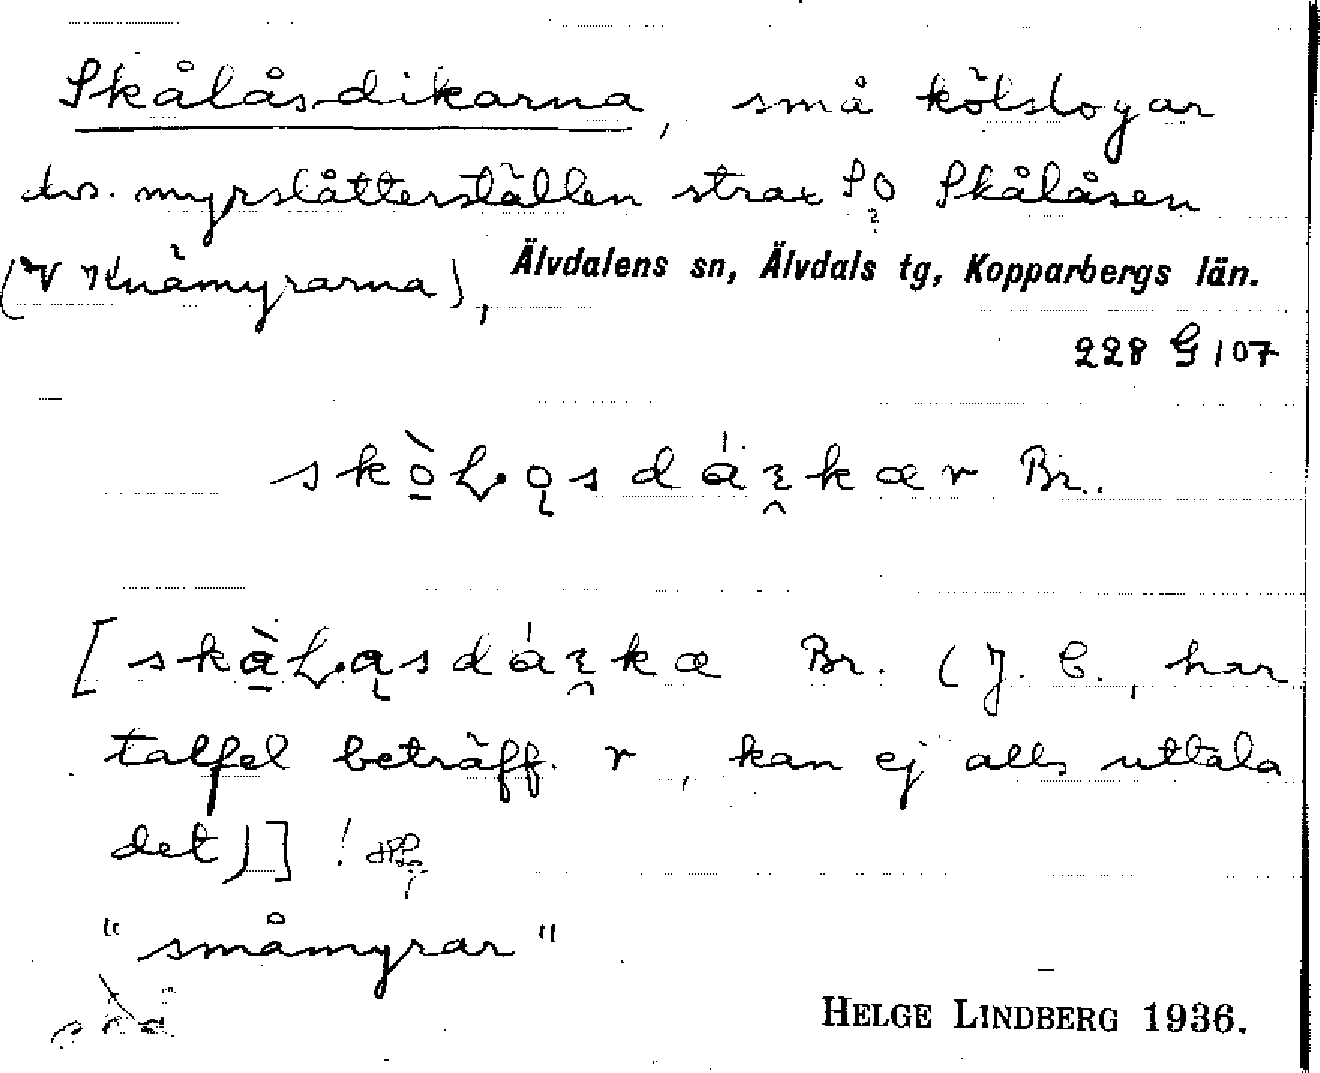 Skålåsdikarna, små kölslogar
dvs. myrslåtterställen strax SO Skålåsen
(V Knämyrarna), Älvdalens sn, Älvdals tg, Kopparbergs län.
228 G 107
Br.
Br. (J. E., har
talfel beträff. r, kan ej alls uttala
det)] !
"småmyrar"
HELGE LINDBERG 1936.